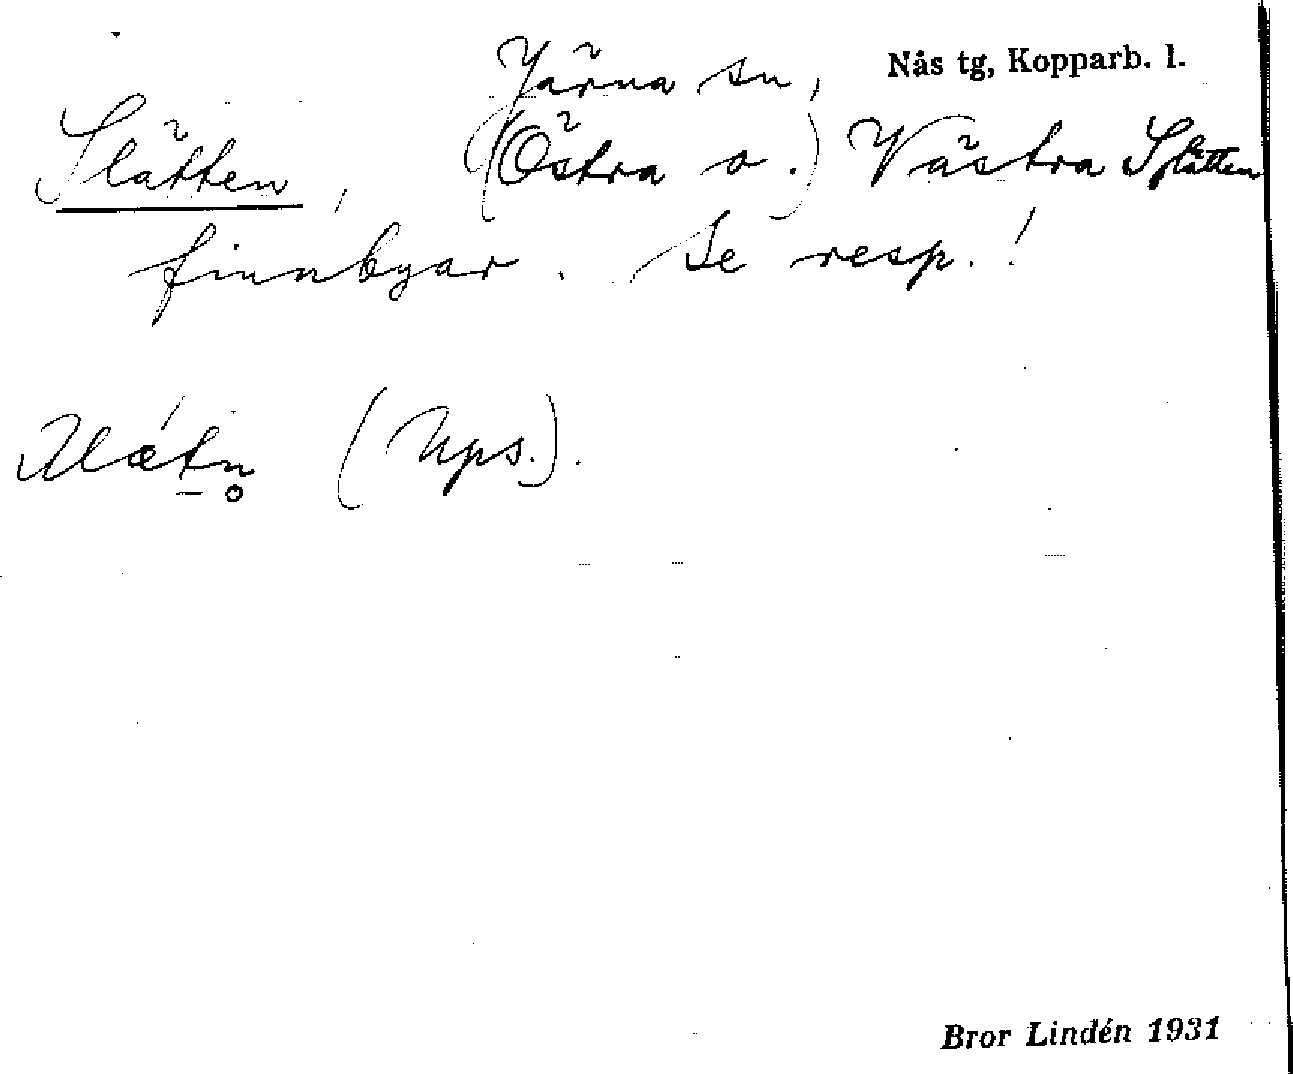 Järna sn, Nås tg, Kopparb. l.
Slätten, (Östra o.) Västra Slätten
finnbyar. Se resp.!
(Ups.).
Bror Lindén 1931